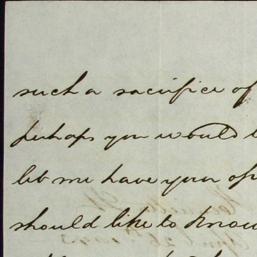 such a sacrifice of
perhaps you would
let me have your
should like to know